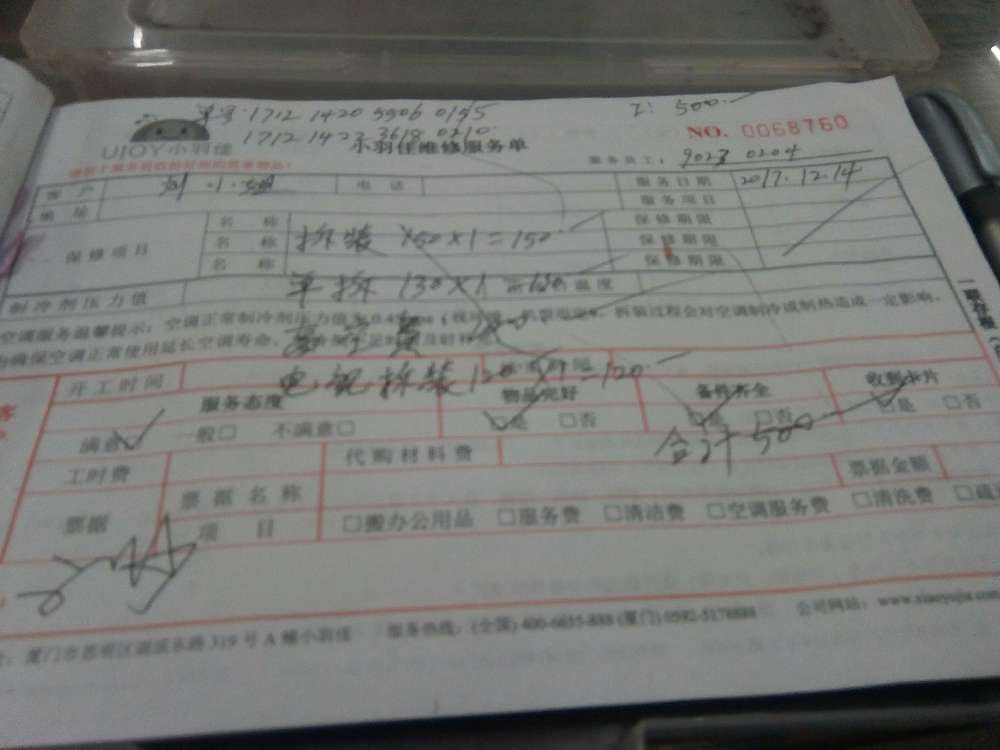 单号:1712 1420 5906 0155
I: 500.
1712 1423 3618 0210
UJOY小羽佳
小羽佳维修服务单
NO. 0068760
服务员工: 9023 0204
客户 刘小姐 电话 服务日期 2017.12.14
地址 服务项目
保修项目 名称 保修期限
名称 拆装 150×1=150 保修期限
名称 保修期限
制冷剂压力值 单拆 130×1 温度
空调服务温馨提示:空调正常制冷剂压力值为
拆装过程会对空调制冷或制热造成一定影响。
为确保空调正常使用延长空调寿命,
高空费 100
开工时间 电视拆装120×1=120
服务态度 物品完好 备件齐全 收到卡片
满意 一般□ 不满意□ □是 □否 □是 □否 □是 □否
工时费 代购材料费 合计500
票据 票据名称 票据金额
项目 □搬办公用品 □服务费 □清洁费 □空调服务费 □清洗费
厦门市思明区湖滨东路319号A幢小羽佳 服务热线:(全国)400-6655-888 (厦门) 0592-5178888 公司网站:www.xiaoyujia.com